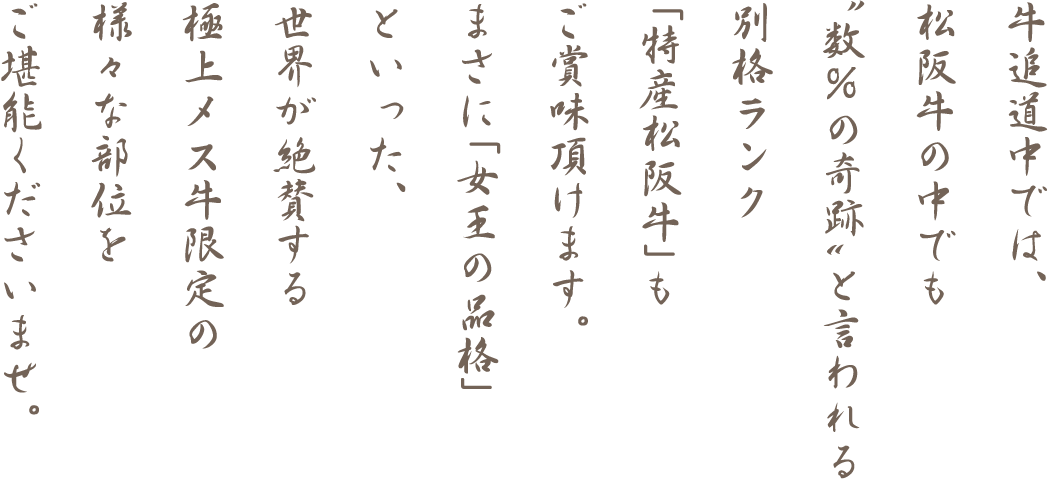 牛追道中では、
松阪牛の中でも
〝数％の奇跡〟と言われる
別格ランク
「特産松阪牛」も
ご賞味頂けます。
まさに「女王の品格」
といった、
世界が絶賛する
極上メス牛限定の
様々な部位を
ご堪能くださいませ。